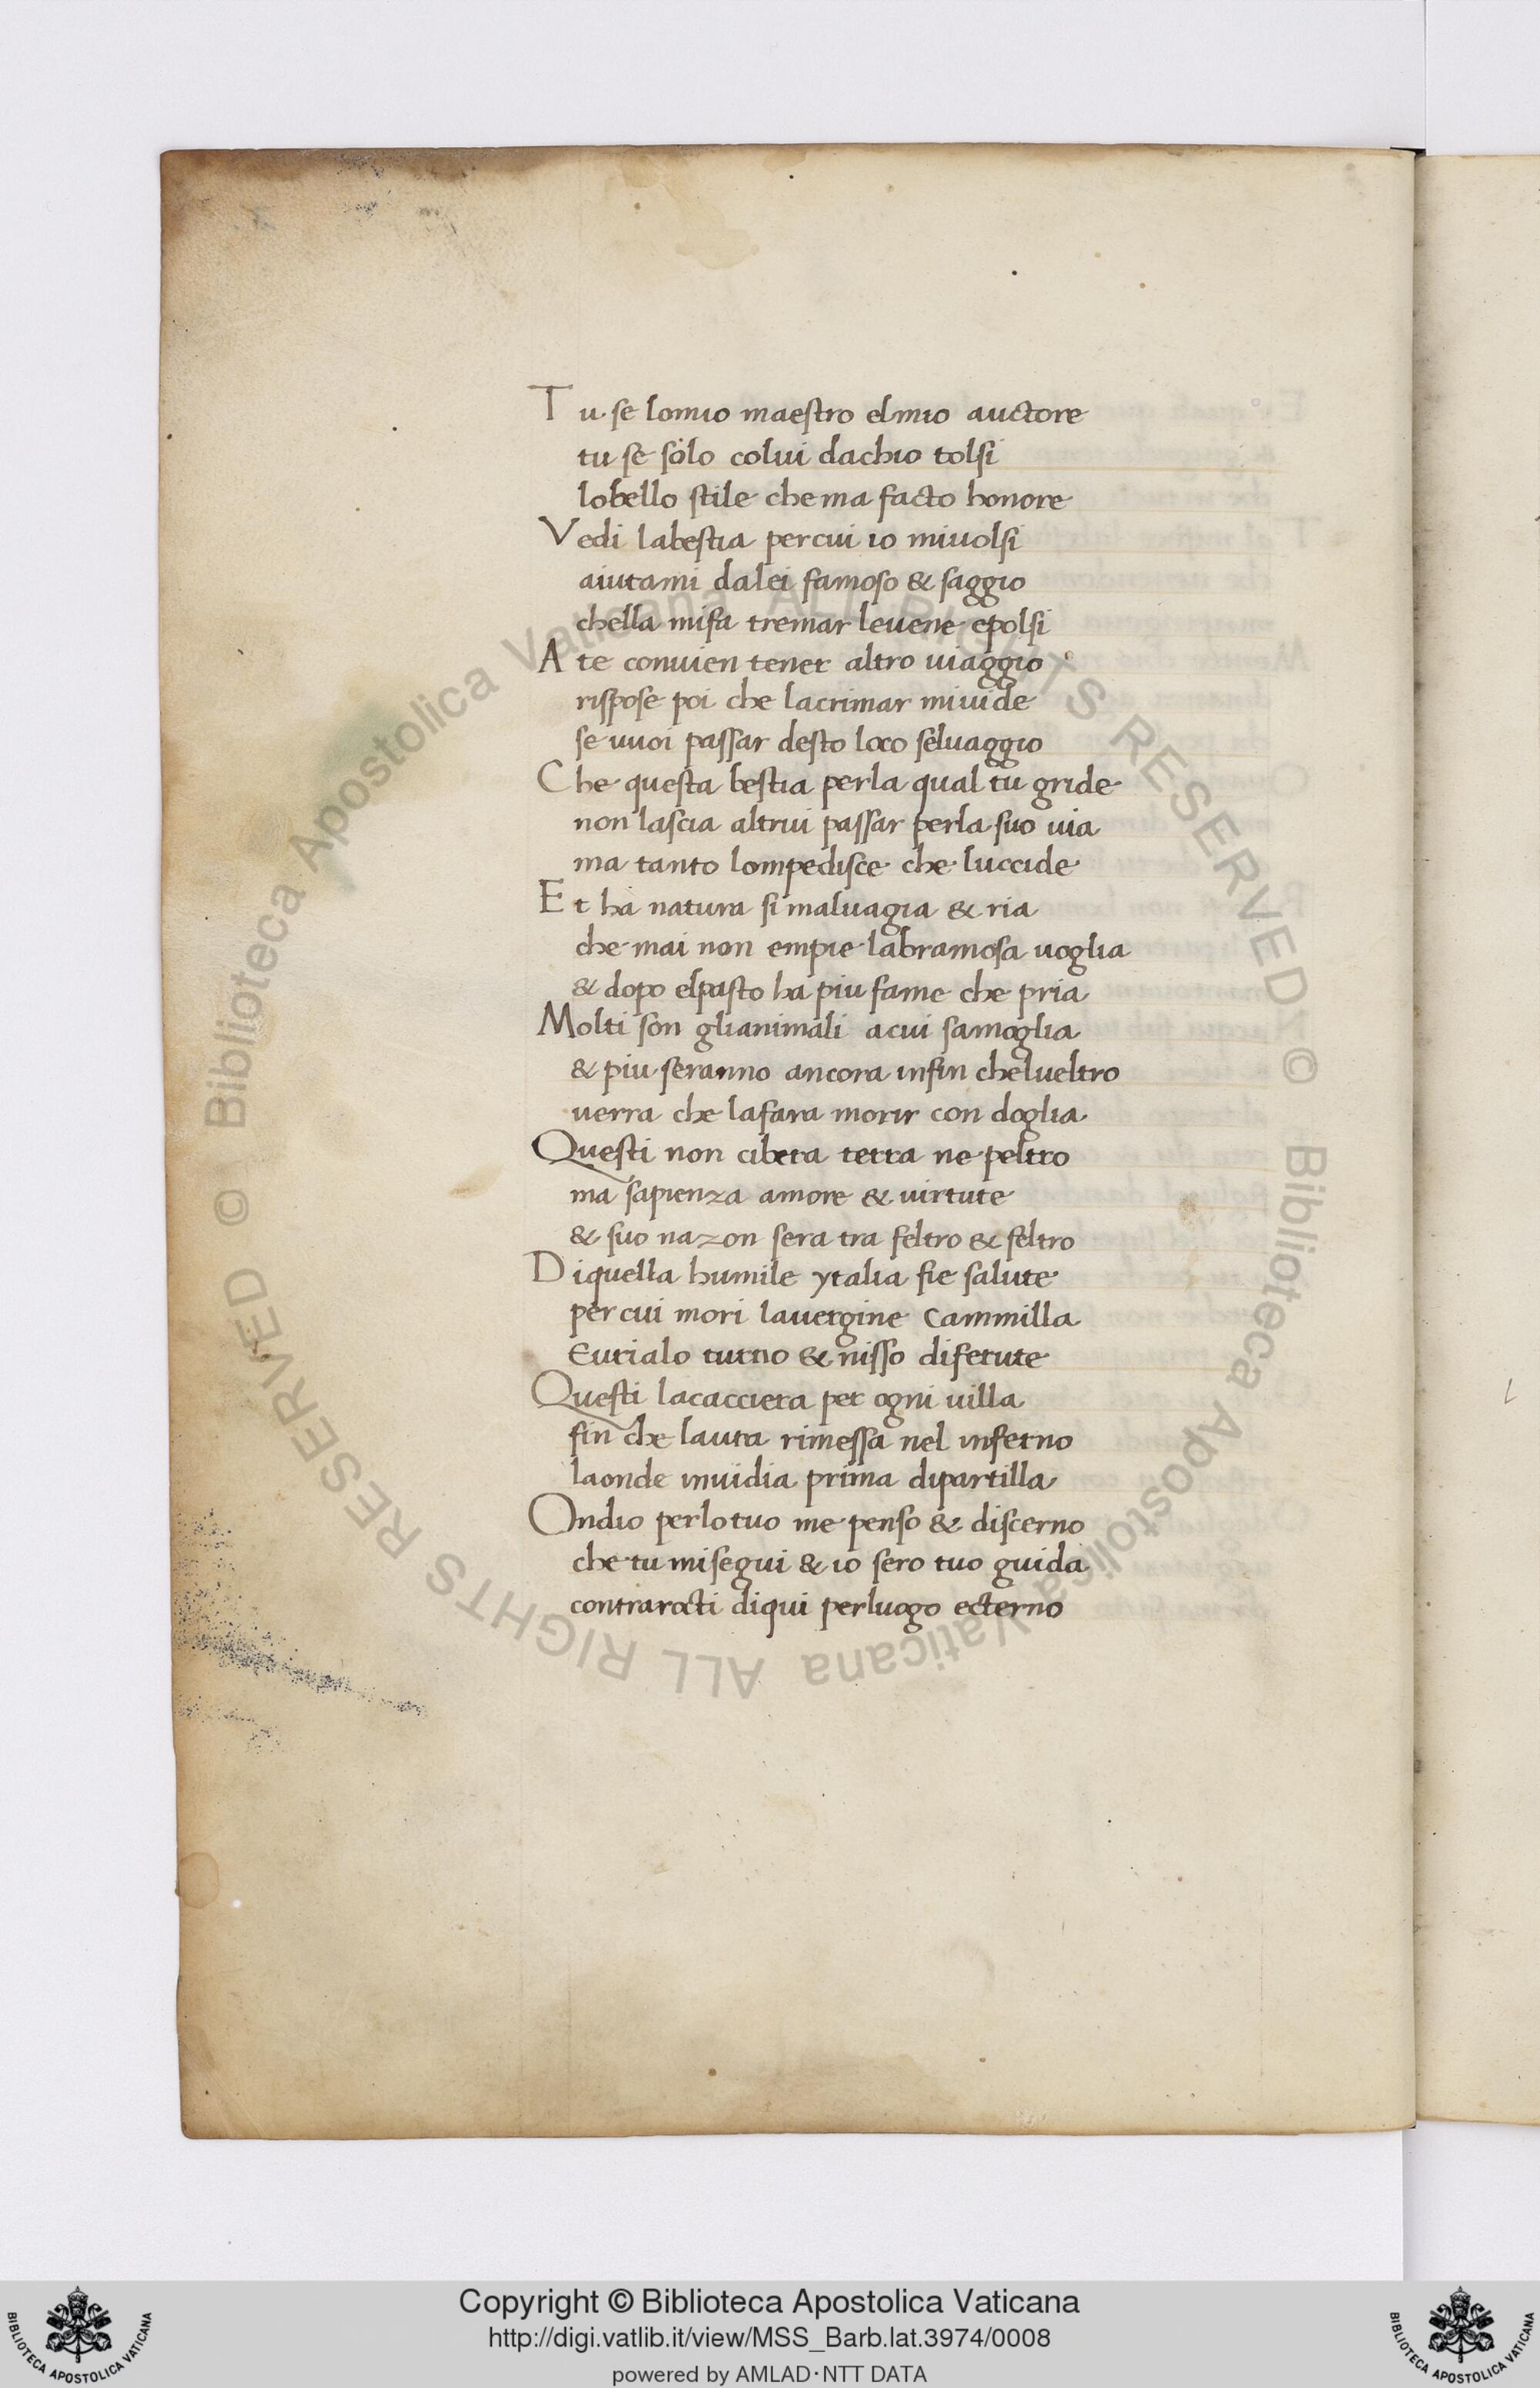 Tu se lomio maestro elmio auctore
tu se solo colui dachio tolsi
lobello stile che ma facto honore
Vedi labestia percui io miuolsi
aiutami dalei famoso & saggio
chella mifa tremar leuene epolsi
A te conuien tener altro uiaggio
rispose poi che lacrimar miuide
se uuoi passar desto loco seluaggio
Che questa bestia perla qual tu gride
non lascia altrui passar perla suo uia
ma tanto lompedisce che luccide
Et ha natura si maluagia & ria
che mai non empie labramosa uoglia
& dopo elpasto ha piu fame che pria
Molti son glianimali acui samoglia
& piu seranno ancora infin chelueltro
uerra che lafara morir con doglia
Questi non cibera terra ne peltro
ma sapienza amore & uirtute
& suo nazon sera tra feltro & feltro
Diquella humile ytalia fie salute
per cui mori lauergine Cammilla
Eurialo turno & nisso diferute
Questi lacacciera per ogni uilla
fin che laura rimessa nel inferno
laonde inuidia prima dipartilla
Ondio perlotuo me penso & discerno
che tu misegui & io sero tuo guida
contraracti diqui perluogo ecterno
Biblioteca Apostolica Vaticana ALL RIGHTS RESERVED ©
Biblioteca Apostolica Vaticana ALL RIGHTS RESERVED ©
Copyright © Biblioteca Apostolica Vaticana
http://digi.vatlib.it/view/MSS_Barb.lat.3974/0008
powered by AMLAD·NTT DATA
BIBLIOTECA APOSTOLICA VATICANA
BIBLIOTECA APOSTOLICA VATICANA